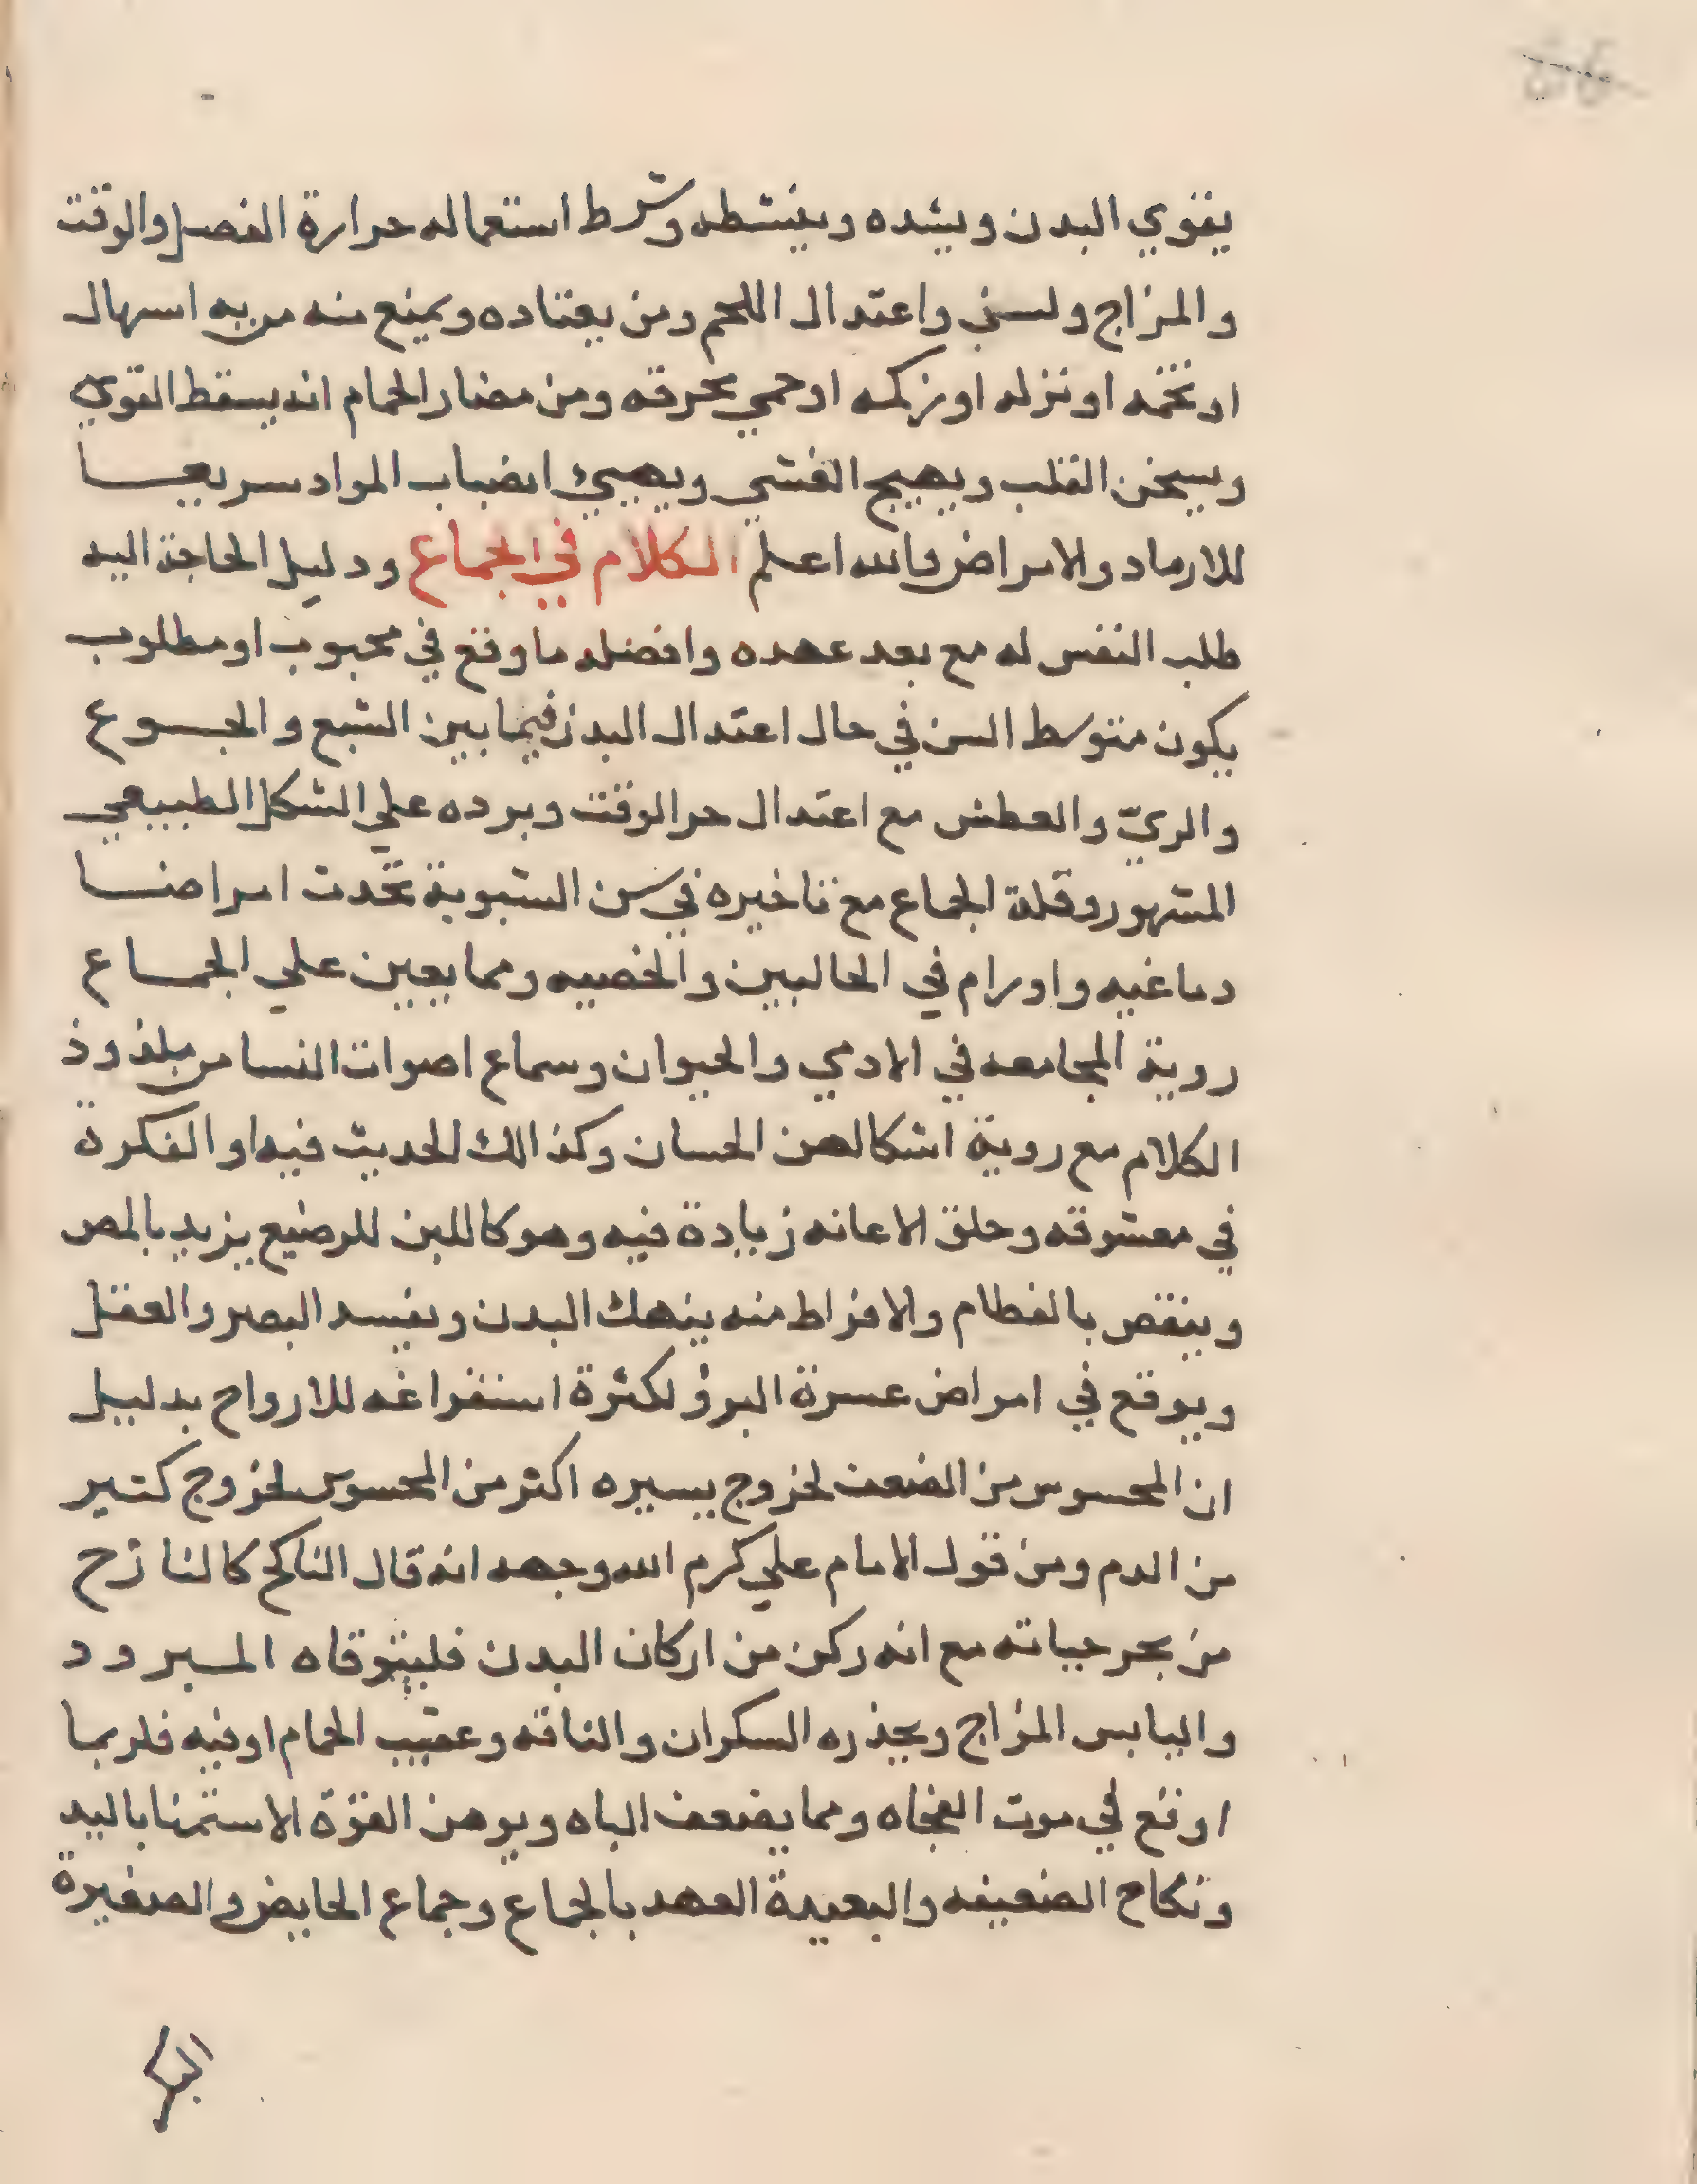 يقوي البدن ويشده وينشطه وشرط استعماله حرارة الفصل والوقت
والمزاج ولسنى واعتدال اللحم ومن يعتاده ويمنع منه من به اسهال
او تخمه او نزله او زكمه او حمي محرقه ومن مضار الحمام انه يسقط القوي
ويسخن القلب ويهيج الغشي ويهيئ انضباب المواد سريعا
للارماد والامراض والله اعلم الكلام في الجماع ودليل الحاجة اليه
طلب النفس له مع بعد عهده وافضله ما وقع في محبوب او مطلوب
يكون متوسط السن في حال اعتدال البدن فيما بين الشبع والجوع
والريّ والعطش مع اعتدال حر الوقت وبرده علي الشكل الطبيعي
المشهور وقلة الجماع مع تاخيره في سن الشبوبية تحدث امراضا
دماغيه واورام في الحالبين والخصيه ومما يعين علي الجماع
روية المجامعه في الادمي والحيوان وسماع اصوات النسا من ملذوذ
الكلام مع روية اشكالهن الحسان وكذالك الحديث فيه او الفكرة
في معشوقه وحلق الاعانه زيادة فيه وهو كاللبن للرضيع يزيد بالمص
وينقص بالفطام والافراط منه ينهك البدن ويفسد البصر والعقل
ويوقع في امراض عسرة البرؤ لكثرة استفراغه للارواح بدليل
ان المحسوس من الضعف لخروج يسيره اكثر من المحسوس لخروج كثير
من الدم ومن قول الامام علي كرم الله وجهه انه قال الناكح كالنازح
من بحر حياته مع انه ركن من اركان البدن فليتوقاه المبرود
واليابس المزاج ويحذره السكران والناقه وعقيب الحمام او فيه فلربما
اوقع في موت الفجاه ومما يضعف الباه ويوهن القوة الاستمنا باليد
ونكاح الضعيفه والبعيدة العهد بالجماع وجماع الحايض والصغيرة